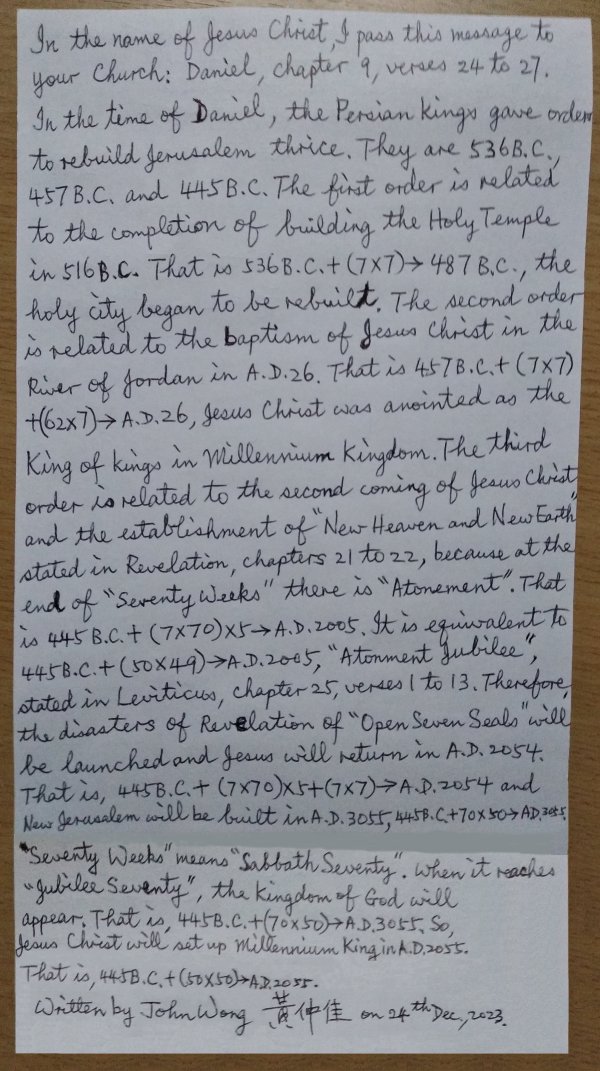 In the name of Jesus Christ, I pass this message to
your Church: Daniel, chapter 9, verses 24 to 27.
In the time of Daniel, the Persian kings gave order
to rebuild Jerusalem thrice. They are 536 B.C.,
457 B.C. and 445 B.C. The first order is related
to the completion of building the Holy Temple
in 516 B.C. That is 536 B.C. + (7X7)→ 487 B.C., the
holy city began to be rebuilt. The second order
is related to the baptism of Jesus Christ in the
River of Jordan in A.D. 26. That is 457 B.C. + (7X7)
+(62X7)→ A.D. 26, Jesus Christ was anointed as the
King of kings in Millennium Kingdom. The third
order is related to the second coming of Jesus Christ
and the establishment of "New Heaven and New Earth"
stated in Revelation, chapters 21 to 22, because at the
end of "Seventy Weeks" there is "Atonement". That
is 445 B.C. + (7X70)X5→A.D. 2005. It is equivalent to
445 B.C. + (50X49)→A.D. 2005, "Atonment Jubilee",
stated in Leviticus, chapter 25, verses 1 to 13. Therefore,
the disasters of Revelation of "Open Seven Seals" will
be launched and Jesus will return in A.D. 2054.
That is, 445 B.C. + (7X70)X5+(7X7)→A.D. 2054 and
New Jerusalem will be built in A.D. 3055, 445 B.C. + 70X50→A.D. 3055.
"Seventy Weeks" means "Sabbath Seventy". When it reaches
"Jubilee Seventy", the Kingdom of God will
appear. That is, 445 B.C. + (70X50)→A.D. 3055. So,
Jesus Christ will set up Millennium King in A.D. 2055.
That is, 445 B.C. + (50X50)→A.D. 2055.
Written by John Wong 黃仲佳 on 24th Dec, 2023.